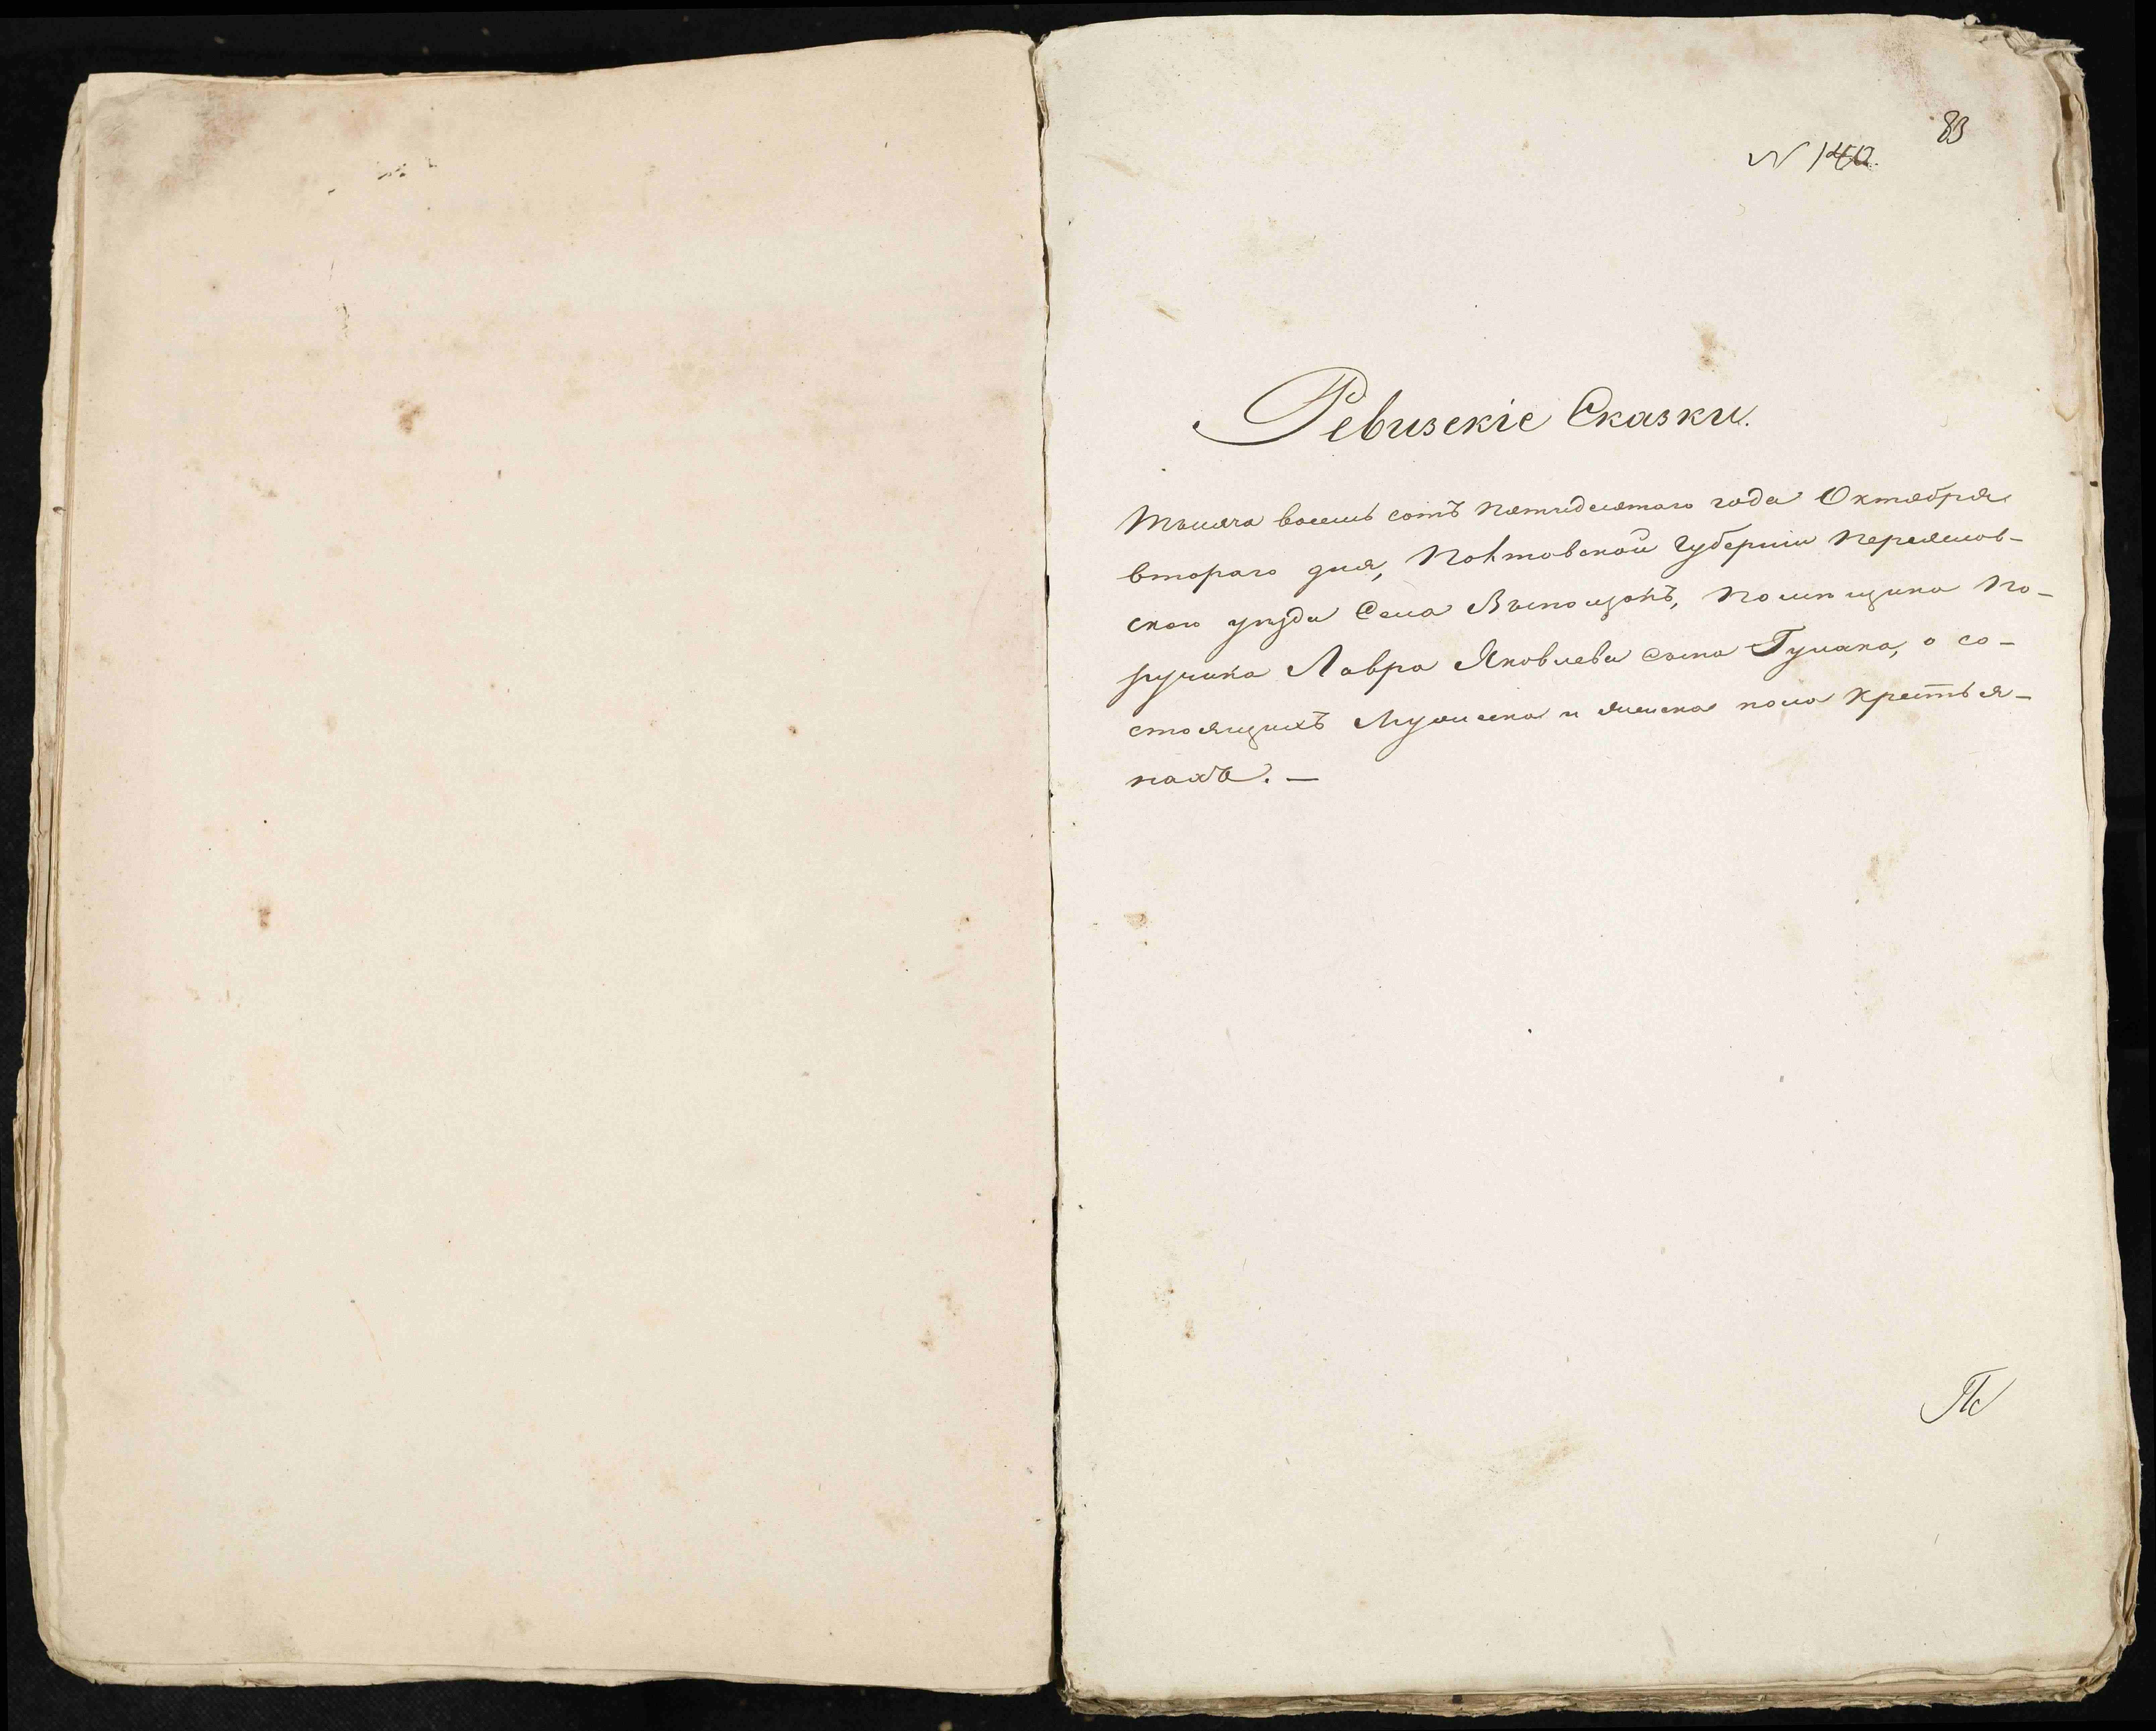 83
N 140.
Ревизскіе Сказки.
Тысяча восемь сотъ пятидесятаго года Октября
втораго дня, Полтавской Губерніи Переяслов-
скаго уѣзда Села Выползокъ, помѣщика По-
ручика Лавра Яковлева сына Гулака, о со-
стоящихъ Мужеска и женска пола крестья-
нахъ. —